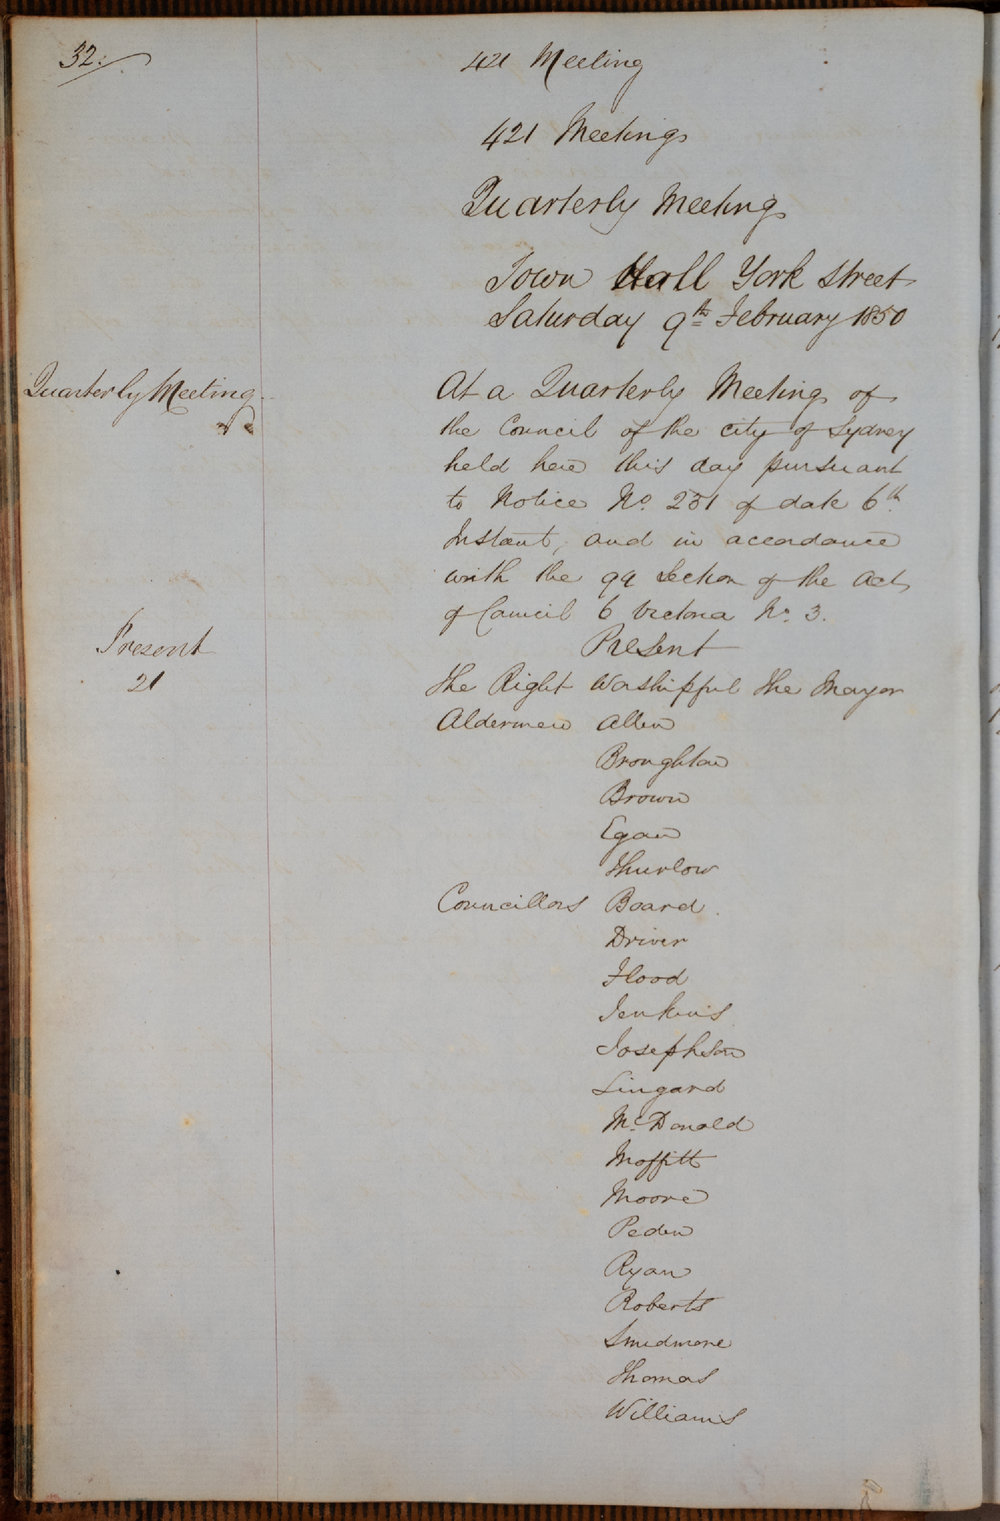 32.
421 Meeting
421 Meetings
Quarterly Meeting
Town Hall York Street
Saturday 9th February 1850
Quarterly Meeting
At a Quarterly Meeting of
the Council of the city of Sydney
held here this day pursuant
to Notice No. 231 of date 6th
Instant, and in accordance
with the 99 Section of the Act
of Council 6 Victoria No. 3.
Present
21
Present
The Right Worshipful the Mayor
Aldermen Allen
Broughton
Brown
Egan
Thurlow
Councillors Board
Driver
Flood
Jenkins
Josephson
Lingard
McDonald
Moffitt
Moore
Peden
Ryan
Roberts
Smidmore
Thomas
Williams